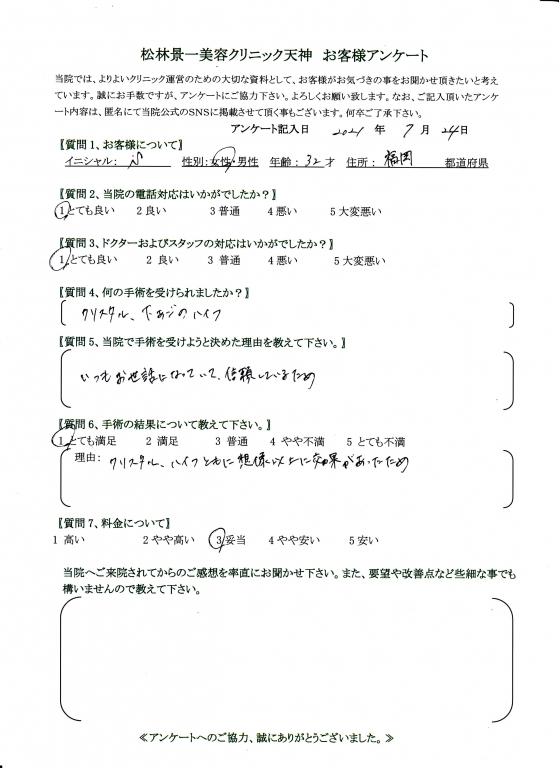 松林景一美容クリニック天神 お客様アンケート
当院では、よりよいクリニック運営のための大切な資料として、お客様がお気づきの事をお聞かせ頂きたいと考え
ています。誠にお手数ですが、アンケートにご協力下さい。よろしくお願い致します。なお、ご記入頂いたアンケ
ート内容は、匿名にて当院公式のSNSに掲載させて頂く事もございます。何卒ご了承下さい。
アンケート記入日 2021 年 7 月 24日
〖質問1、お客様について〗
イニシャル: 性別:女性・男性 年齢:32才 住所:福岡 都道府県
〖質問2、当院の電話対応はいかがでしたか?〗
1とても良い 2良い 3普通 4悪い 5大変悪い
〖質問3、ドクターおよびスタッフの対応はいかがでしたか?〗
1とても良い 2 良い 3 普通 4悪い 5大変悪い
〖質問4、何の手術を受けられましたか?〗
クリスタル、下あごのハイフ
〖質問5、当院で手術を受けようと決めた理由を教えて下さい。〗
いつもお世話になっていて、信頼しているため
〖質問6、手術の結果について教えて下さい。〗
1とても満足 2 満足 3 普通 4 やや不満 5 とても不満
理由: クリスタル、ハイフともに想像以上に効果があったため
〖質問7、料金について〗
1 高い 2やや高い 3妥当 4やや安い 5安い
当院へご来院されてからのご感想を率直にお聞かせ下さい。また、要望や改善点など些細な事でも
構いませんので教えて下さい。
≪アンケートへのご協力、誠にありがとうございました。≫